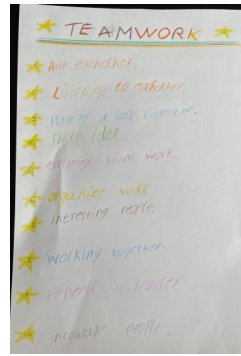 TEAMWORK
eachother.
Listening to eachother.
Planing a task together.
Swap idea.
explaing team work
organies work
intresting people.
working together.
need a leader.
incourage people.